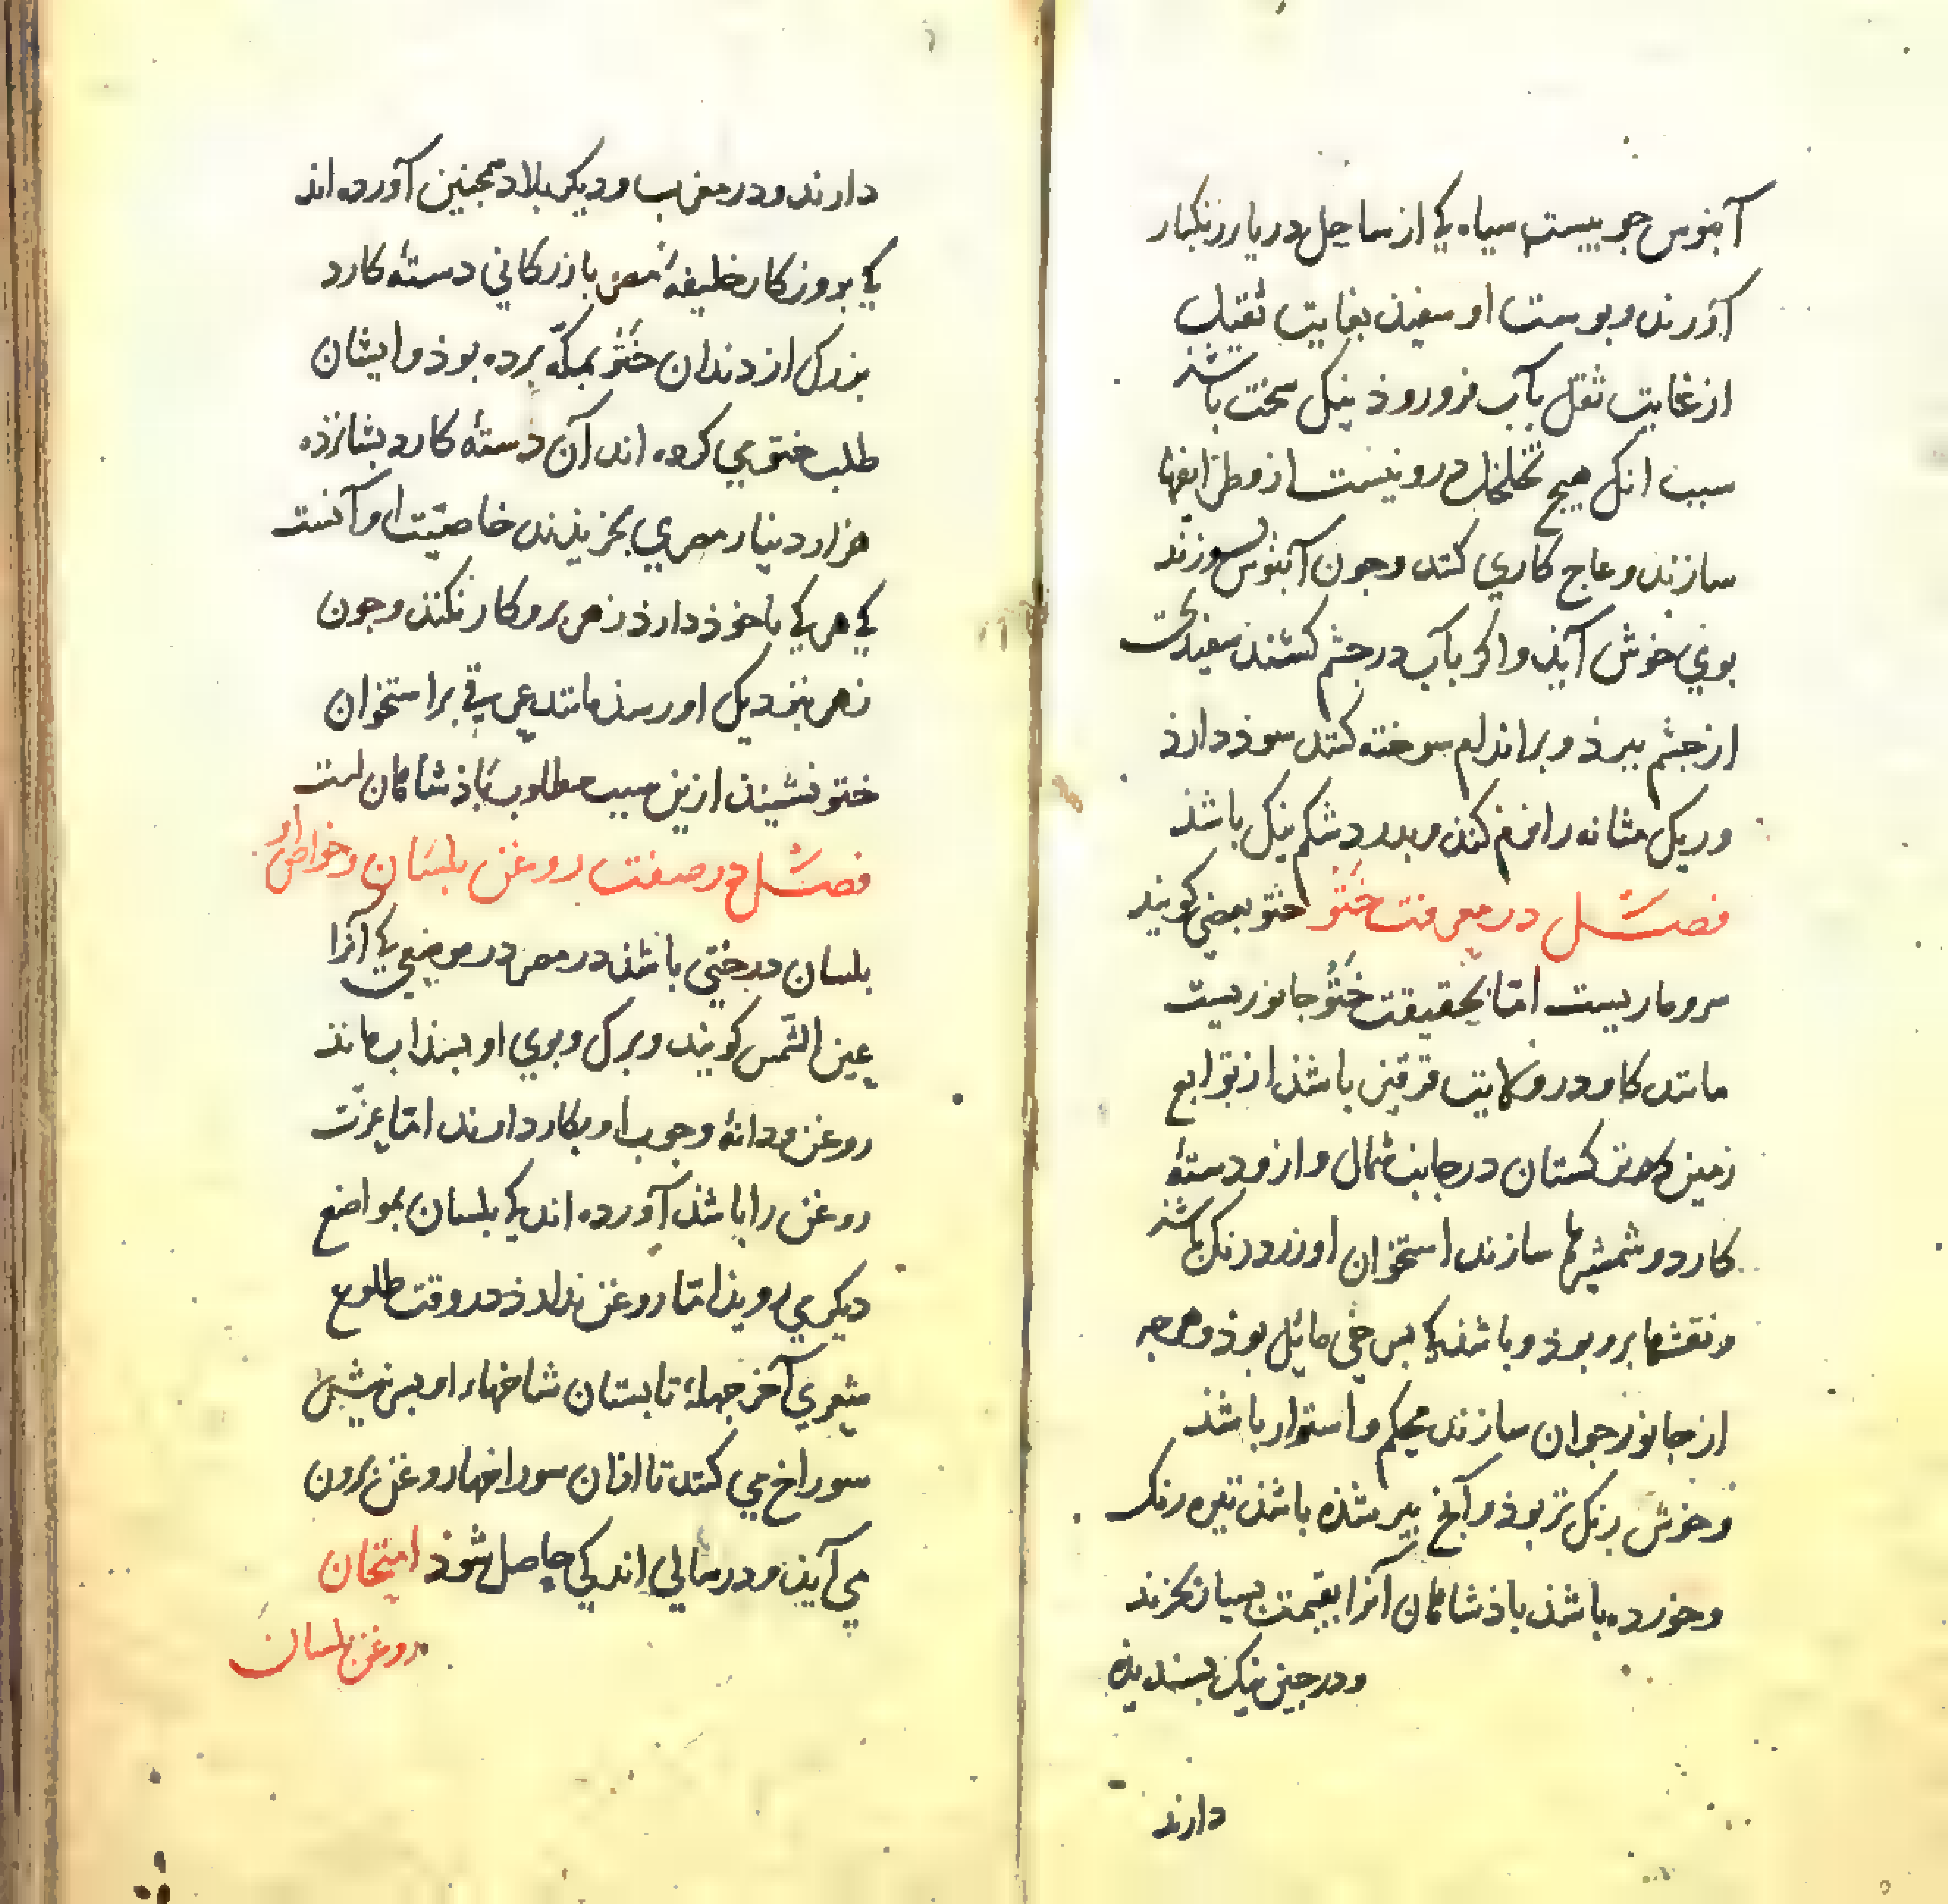 آبنوس جوبیست سیاه کی از ساحل دریار زنکبار
آورند و بوست او سفیذ بغایت ثقیل
از غایت ثقل بآب فرو روذ نیک سخت باشذ
سبب انک هیج تخلخل درو نیست ازو طرایفها
سازند و عاج کاري کنند وجون آبنوس بسوزند
بوي خوش آیذ واکر بآب در جشم کشند سفیدي
از جشم ببرذ و بر اندام سوخته کنند سوذ دارذ
وریک مثانه را نرم کند و بدرد شکم نیک باشذ
فصل در معرفت خُتُو ختو بعضي کویند
سرو ماریست امّا بحقیقت خُتُو جانوریست
مانند کاو در ولایت قرقیز باشذ از توابع
زمین ترکستان در جانب شمال وازو دستۀ
کارد و شمشیرها سازند استخوان او زرد رنک باشذ
ونقشها برو بوذ و باشذ کی بسرخی مایل بوذ و هرجه
از جانور جوان سازند محکم و استوار باشذ
وخوش رنک تر بوذ وآنج پیر شذه باشذ تیره رنک
وخورده باشذ باذشاهان آنرا بقیمت بسیار بخرند
ودر جین نیک بسندیذه
دارند
دارند ودر مغرب ودیکر بلاد همجنین آورده اند
کی بروزکار خلیفۀ مصر بازرکاني دستۀ کارد
بزرک از دندان ختو بمکّه برده بوذ وایشان
طلب ختوي کرده اند آن دستۀ کارد بشانزده
هزار دینار مصري بخریذند خاصیّت او آنست
کی هر کی باخوذ دارذ زهر برو کار نکند وجون
زهر نزدیک او رسذ مانند عرقی بر استخوان
ختو نشیند ازین سبب مطلوب باذشاهان است
فصل در صفت روغن بلسان وخواص او
بلسان درختي باشذ در مصر در موضعي کی آنرا
عین الشّمس کویند وبرک وبوي او بسذاب ماند
روغن ودانۀ وجوب او بکار دارند امّا عزّت
روغن را باشذ آورده اند کی بلسان بمواضع
دیکر مي رویذ امّا روغن ندارذ در وقت طلوع
شعري آخر جهلۀ تابستان شاخهاء او بسر نیشتر
سوراخ مي کنند تا ازان سوراخها روغن برون
مي آیذ ودر سالي اندکي حاصل شوذ امتحان
روغن بلسان